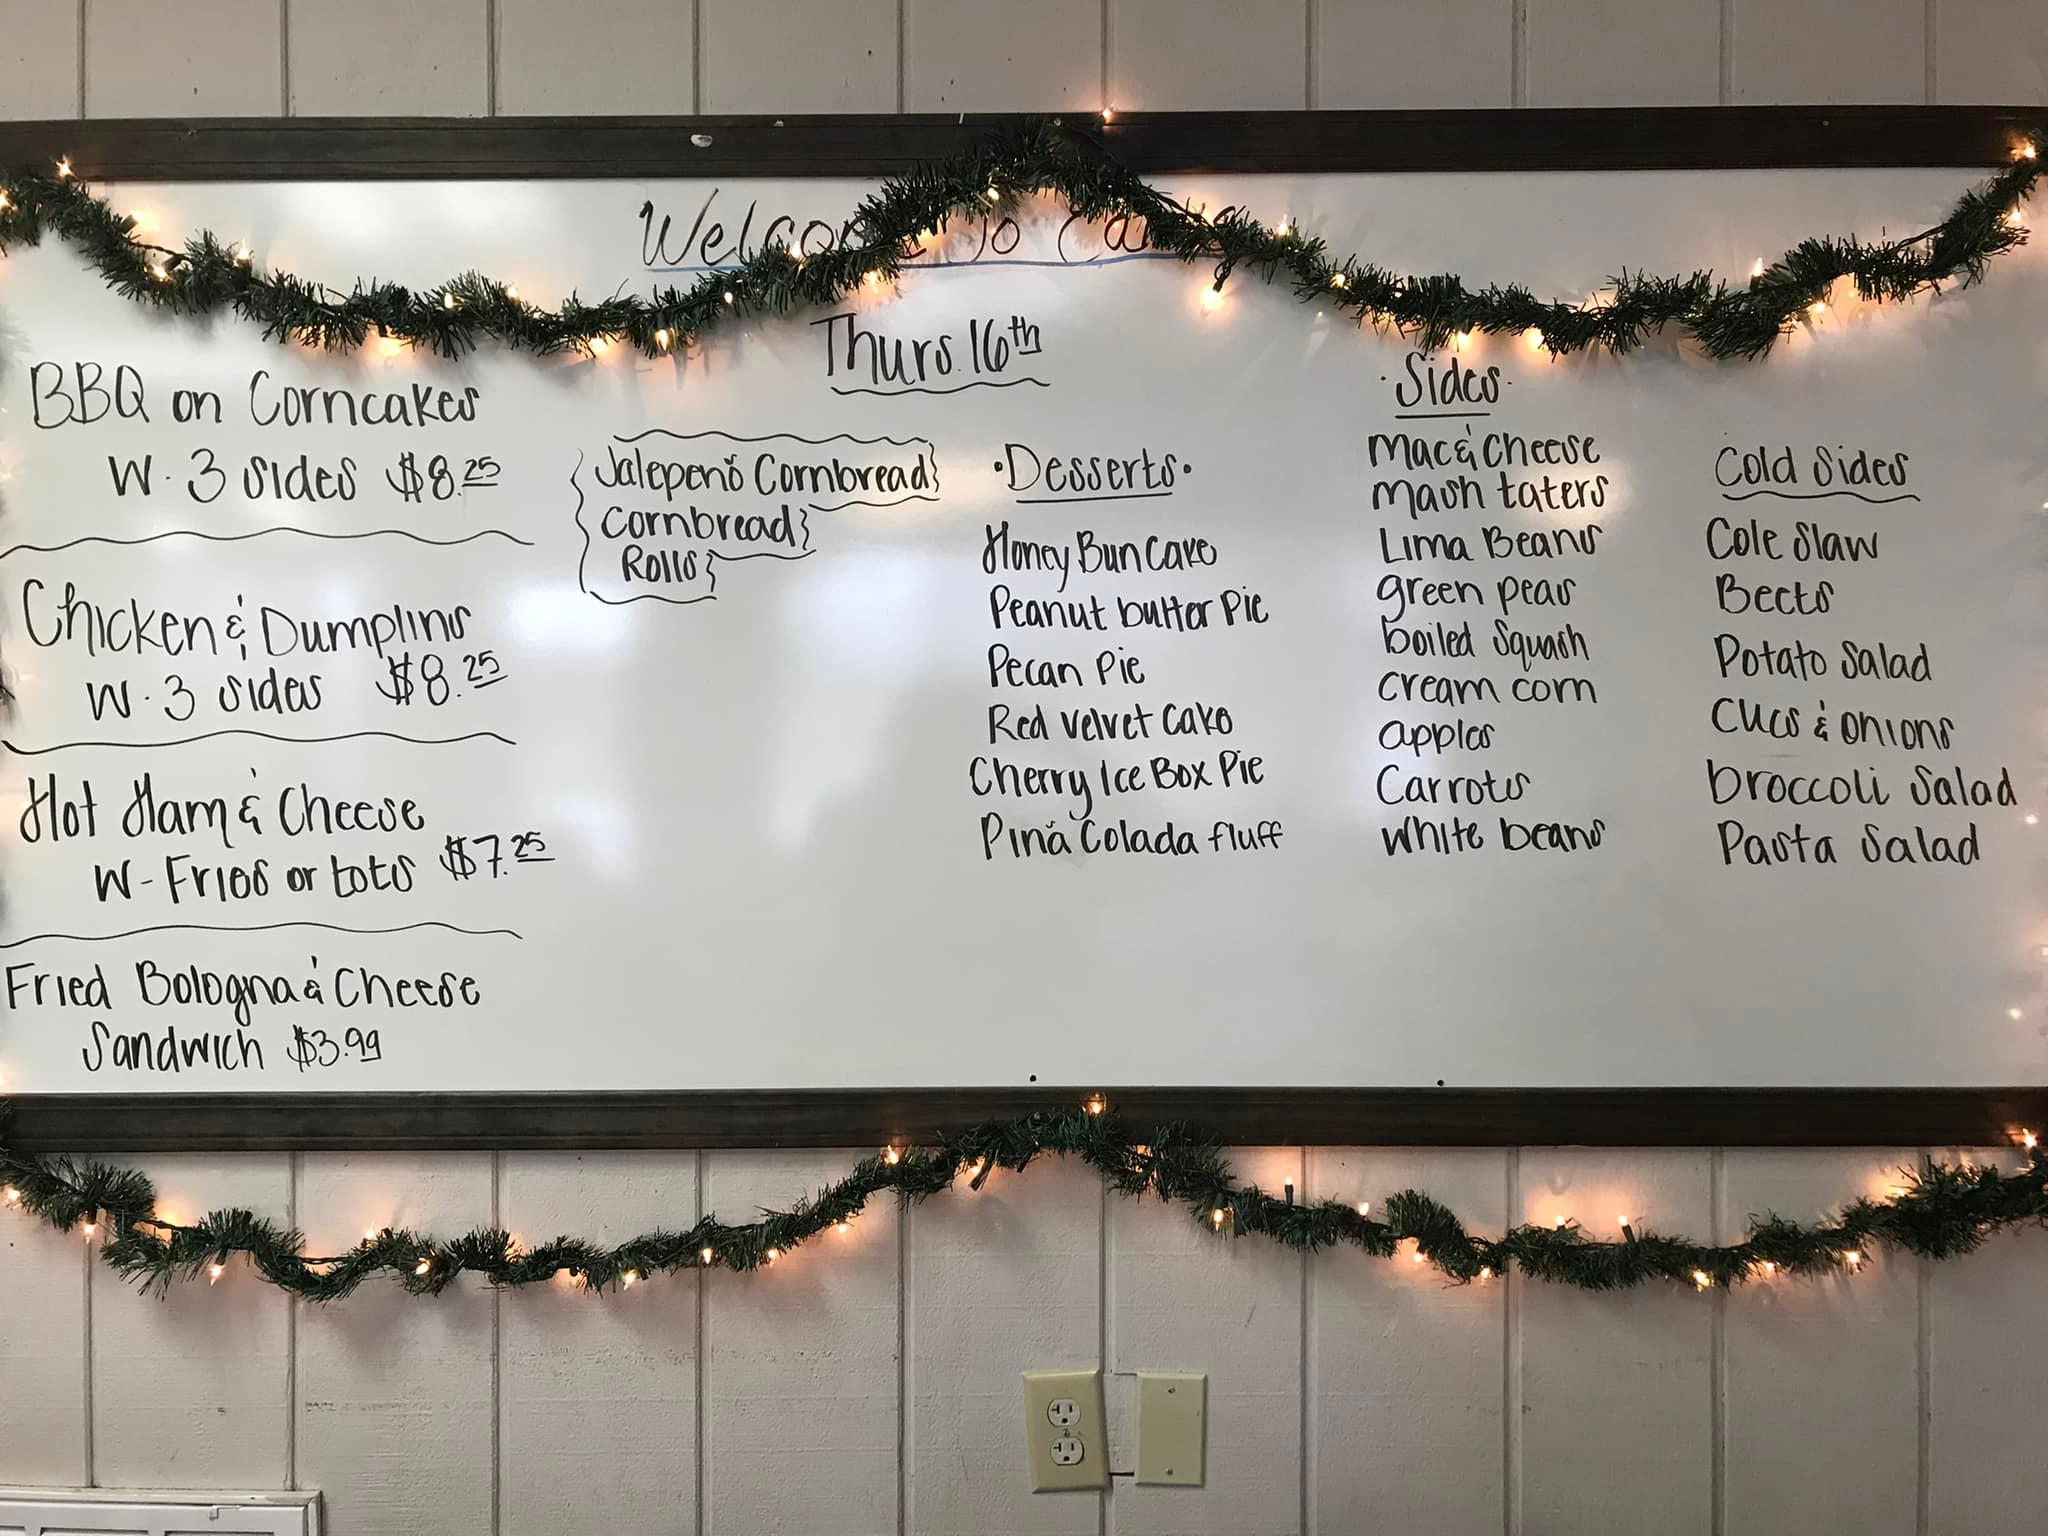 Welcome to
Thurs. 16th
BBQ on Corncakes
W. 3 sides $8.25
Chicken & Dumplins
W. 3 sides $8.25
Hot Ham & Cheese
W- Fries or tots $7.25
Fried Bologna & Cheese
Sandwich $3.99
Jalepenó Cornbread
Cornbread
Rolls
·Desserts·
Honey Bun Cake
Peanut butter Pie
Pecan Pie
Red Velvet Cake
Cherry Ice Box Pie
Pina Colada fluff
·Sides·
Mac & Cheese
Mash taters
Lima Beans
green peas
boiled Squash
cream corn
apples
Carrots
White beans
Cold Sides
Cole Slaw
Beets
Potato Salad
Cucs & onions
broccoli Salad
Pasta Salad